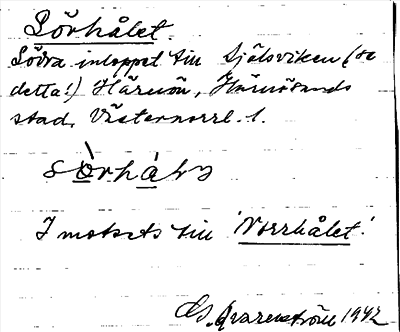 Sörhålet.
Södra inloppet till Själsviken (se
detta!) Härnön, Härnösands
stad, Västernorrl. l.
sò̱rhá̱ləʒ
I motsats till 'Norrhålet'.
Qvarnström 1942